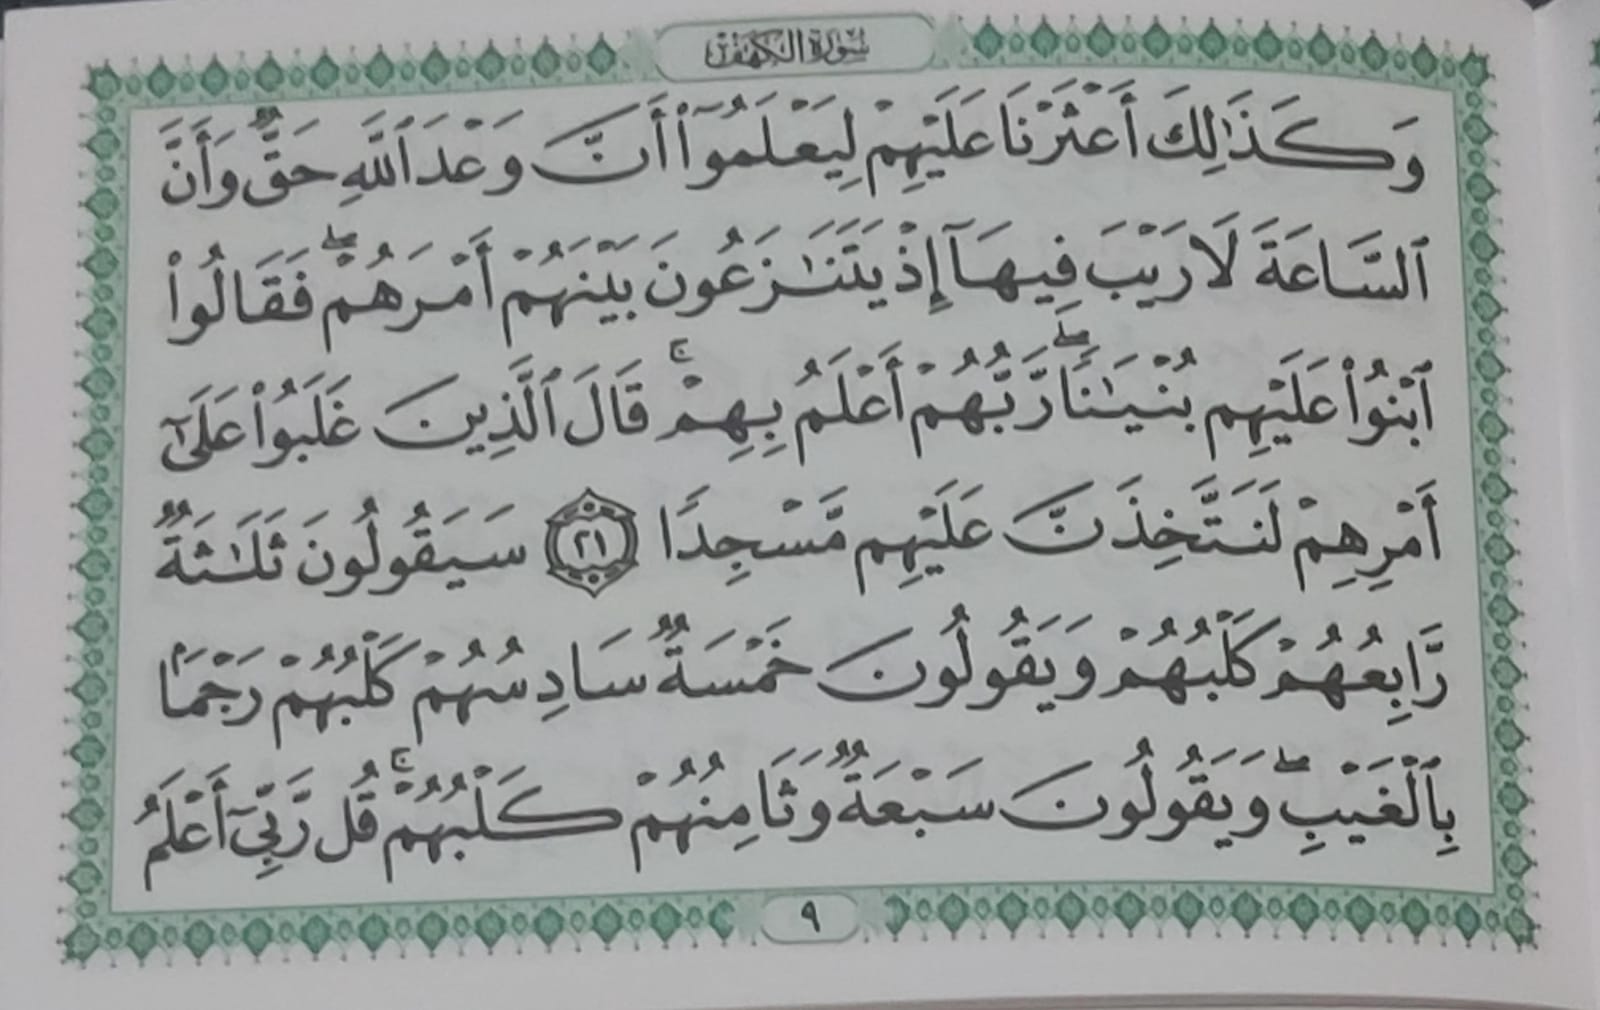 سورة الكهف
وَكَذَٰلِكَ أَعْثَرْنَا عَلَيْهِمْ لِيَعْلَمُوٓا۟ أَنَّ وَعْدَ ٱللَّهِ حَقٌّ وَأَنَّ
ٱلسَّاعَةَ لَا رَيْبَ فِيهَآ إِذْ يَتَنَٰزَعُونَ بَيْنَهُمْ أَمْرَهُمْ ۖ فَقَالُوا۟
ٱبْنُوا۟ عَلَيْهِم بُنْيَٰنًا ۖ رَّبُّهُمْ أَعْلَمُ بِهِمْ ۚ قَالَ ٱلَّذِينَ غَلَبُوا۟ عَلَىٰٓ
أَمْرِهِمْ لَنَتَّخِذَنَّ عَلَيْهِم مَّسْجِدًا ٢١ سَيَقُولُونَ ثَلَٰثَةٌ
رَّابِعُهُمْ كَلْبُهُمْ وَيَقُولُونَ خَمْسَةٌ سَادِسُهُمْ كَلْبُهُمْ رَجْمًۢا
بِٱلْغَيْبِ ۖ وَيَقُولُونَ سَبْعَةٌ وَثَامِنُهُمْ كَلْبُهُمْ ۚ قُل رَّبِّىٓ أَعْلَمُ
٩